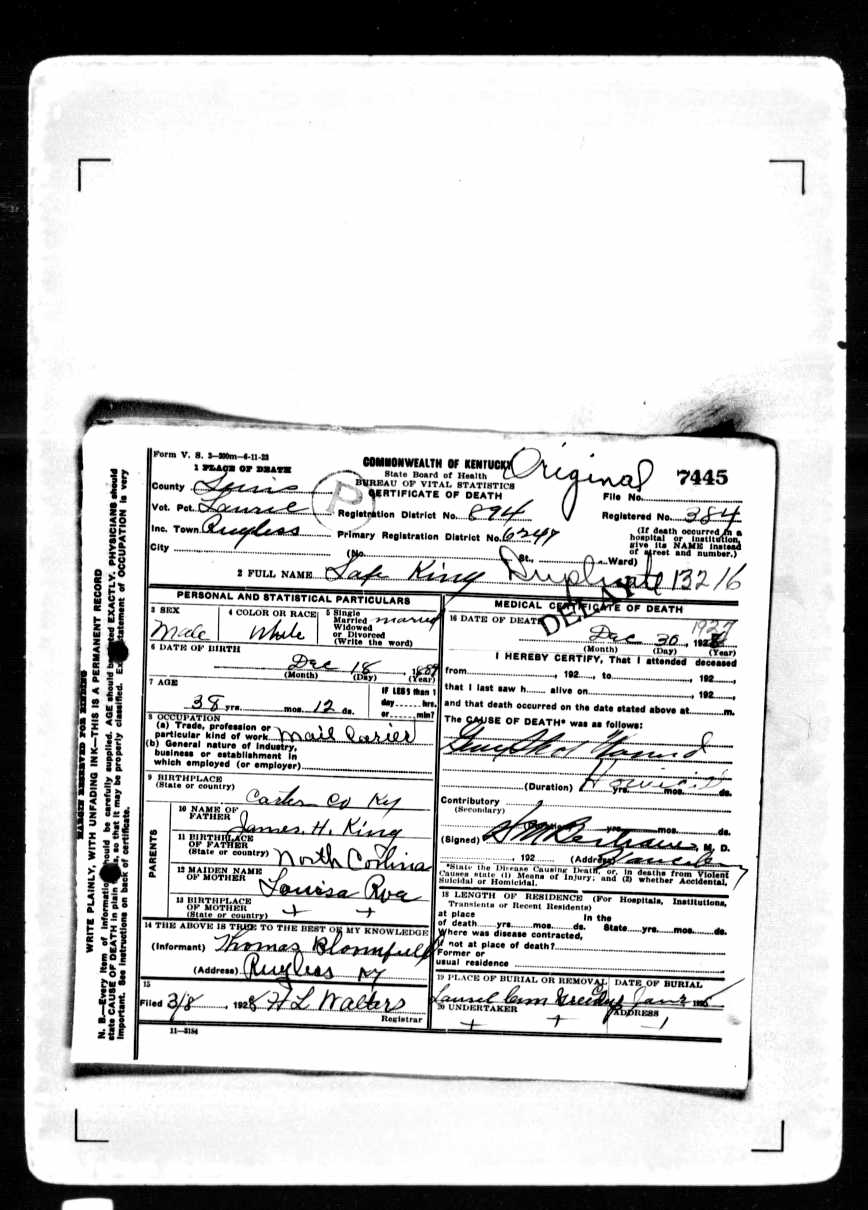 Form V. S. 3-300m-6-11-23
1 PLACE OF DEATH
COMMONWEALTH OF KENTUCKY
State Board of Health
BUREAU OF VITAL STATISTICS
CERTIFICATE OF DEATH
Original
7445
File No.
County Lewis
P
Vot. Pct. Laurel
Registration District No. 894
Registered No. 384
Inc. Town Rugless
Primary Registration District No. 6247
(If death occurred in a hospital or institution, give its NAME instead of street and number.)
City
(No. St., Ward)
2 FULL NAME Lafe King
Duplicate 13216
DELAY
PERSONAL AND STATISTICAL PARTICULARS
3 SEX
Male
4 COLOR OR RACE
White
5 Single
Married
Widowed
or Divorced
(Write the word)
married
6 DATE OF BIRTH
Dec 18, 1889
(Month) (Day) (Year)
7 AGE
38 yrs. mos. 12 ds.
IF LESS than 1
day hrs.
or min?
8 OCCUPATION
(a) Trade, profession or
particular kind of work Mail Carier
(b) General nature of industry,
business or establishment in
which employed (or employer)
9 BIRTHPLACE
(State or country)
Carter Co Ky
PARENTS
10 NAME OF
FATHER
James H. King
11 BIRTHPLACE
OF FATHER
(State or country)
North Corlina
12 MAIDEN NAME
OF MOTHER
Louisa Roe
13 BIRTHPLACE
OF MOTHER
(State or country)
+ +
14 THE ABOVE IS TRUE TO THE BEST OF MY KNOWLEDGE
(Informant) Thomas Bloomfield
(Address) Rugless Ky
15
Filed 3/8, 1928 H L Walters
Registrar
11-3184
MEDICAL CERTIFICATE OF DEATH
16 DATE OF DEATH
1927
Dec 30, 192
(Month) (Day) (Year)
I HEREBY CERTIFY, That I attended deceased
from , 192 , to , 192 ,
that I last saw h alive on , 192 ,
and that death occurred on the date stated above at m.
The CAUSE OF DEATH* was as follows:
Gun Shot Wound
(Duration) yrs. mos. ds.
Contributory
(Secondary)
yrs. mos. ds.
(Signed) M. D.
, 192 (Address)
*State the Disease Causing Death, or, in deaths from Violent
Causes state (1) Means of Injury; and (2) whether Accidental,
Suicidal or Homicidal.
18 LENGTH OF RESIDENCE (For Hospitals, Institutions,
Transients or Recent Residents)
at place In the
of death yrs. mos. ds. State yrs. mos. ds.
Where was disease contracted,
if not at place of death?
Former or
usual residence
19 PLACE OF BURIAL OR REMOVAL
DATE OF BURIAL
Laurel Cem Jan 2
20 UNDERTAKER
ADDRESS
+ +
MARGIN RESERVED FOR BINDING
WRITE PLAINLY, WITH UNFADING INK—THIS IS A PERMANENT RECORD
N. B.—Every item of information should be carefully supplied. AGE should be stated EXACTLY. PHYSICIANS should
state CAUSE OF DEATH in plain terms, so that it may be properly classified. Exact statement of OCCUPATION is very
important. See instructions on back of certificate.